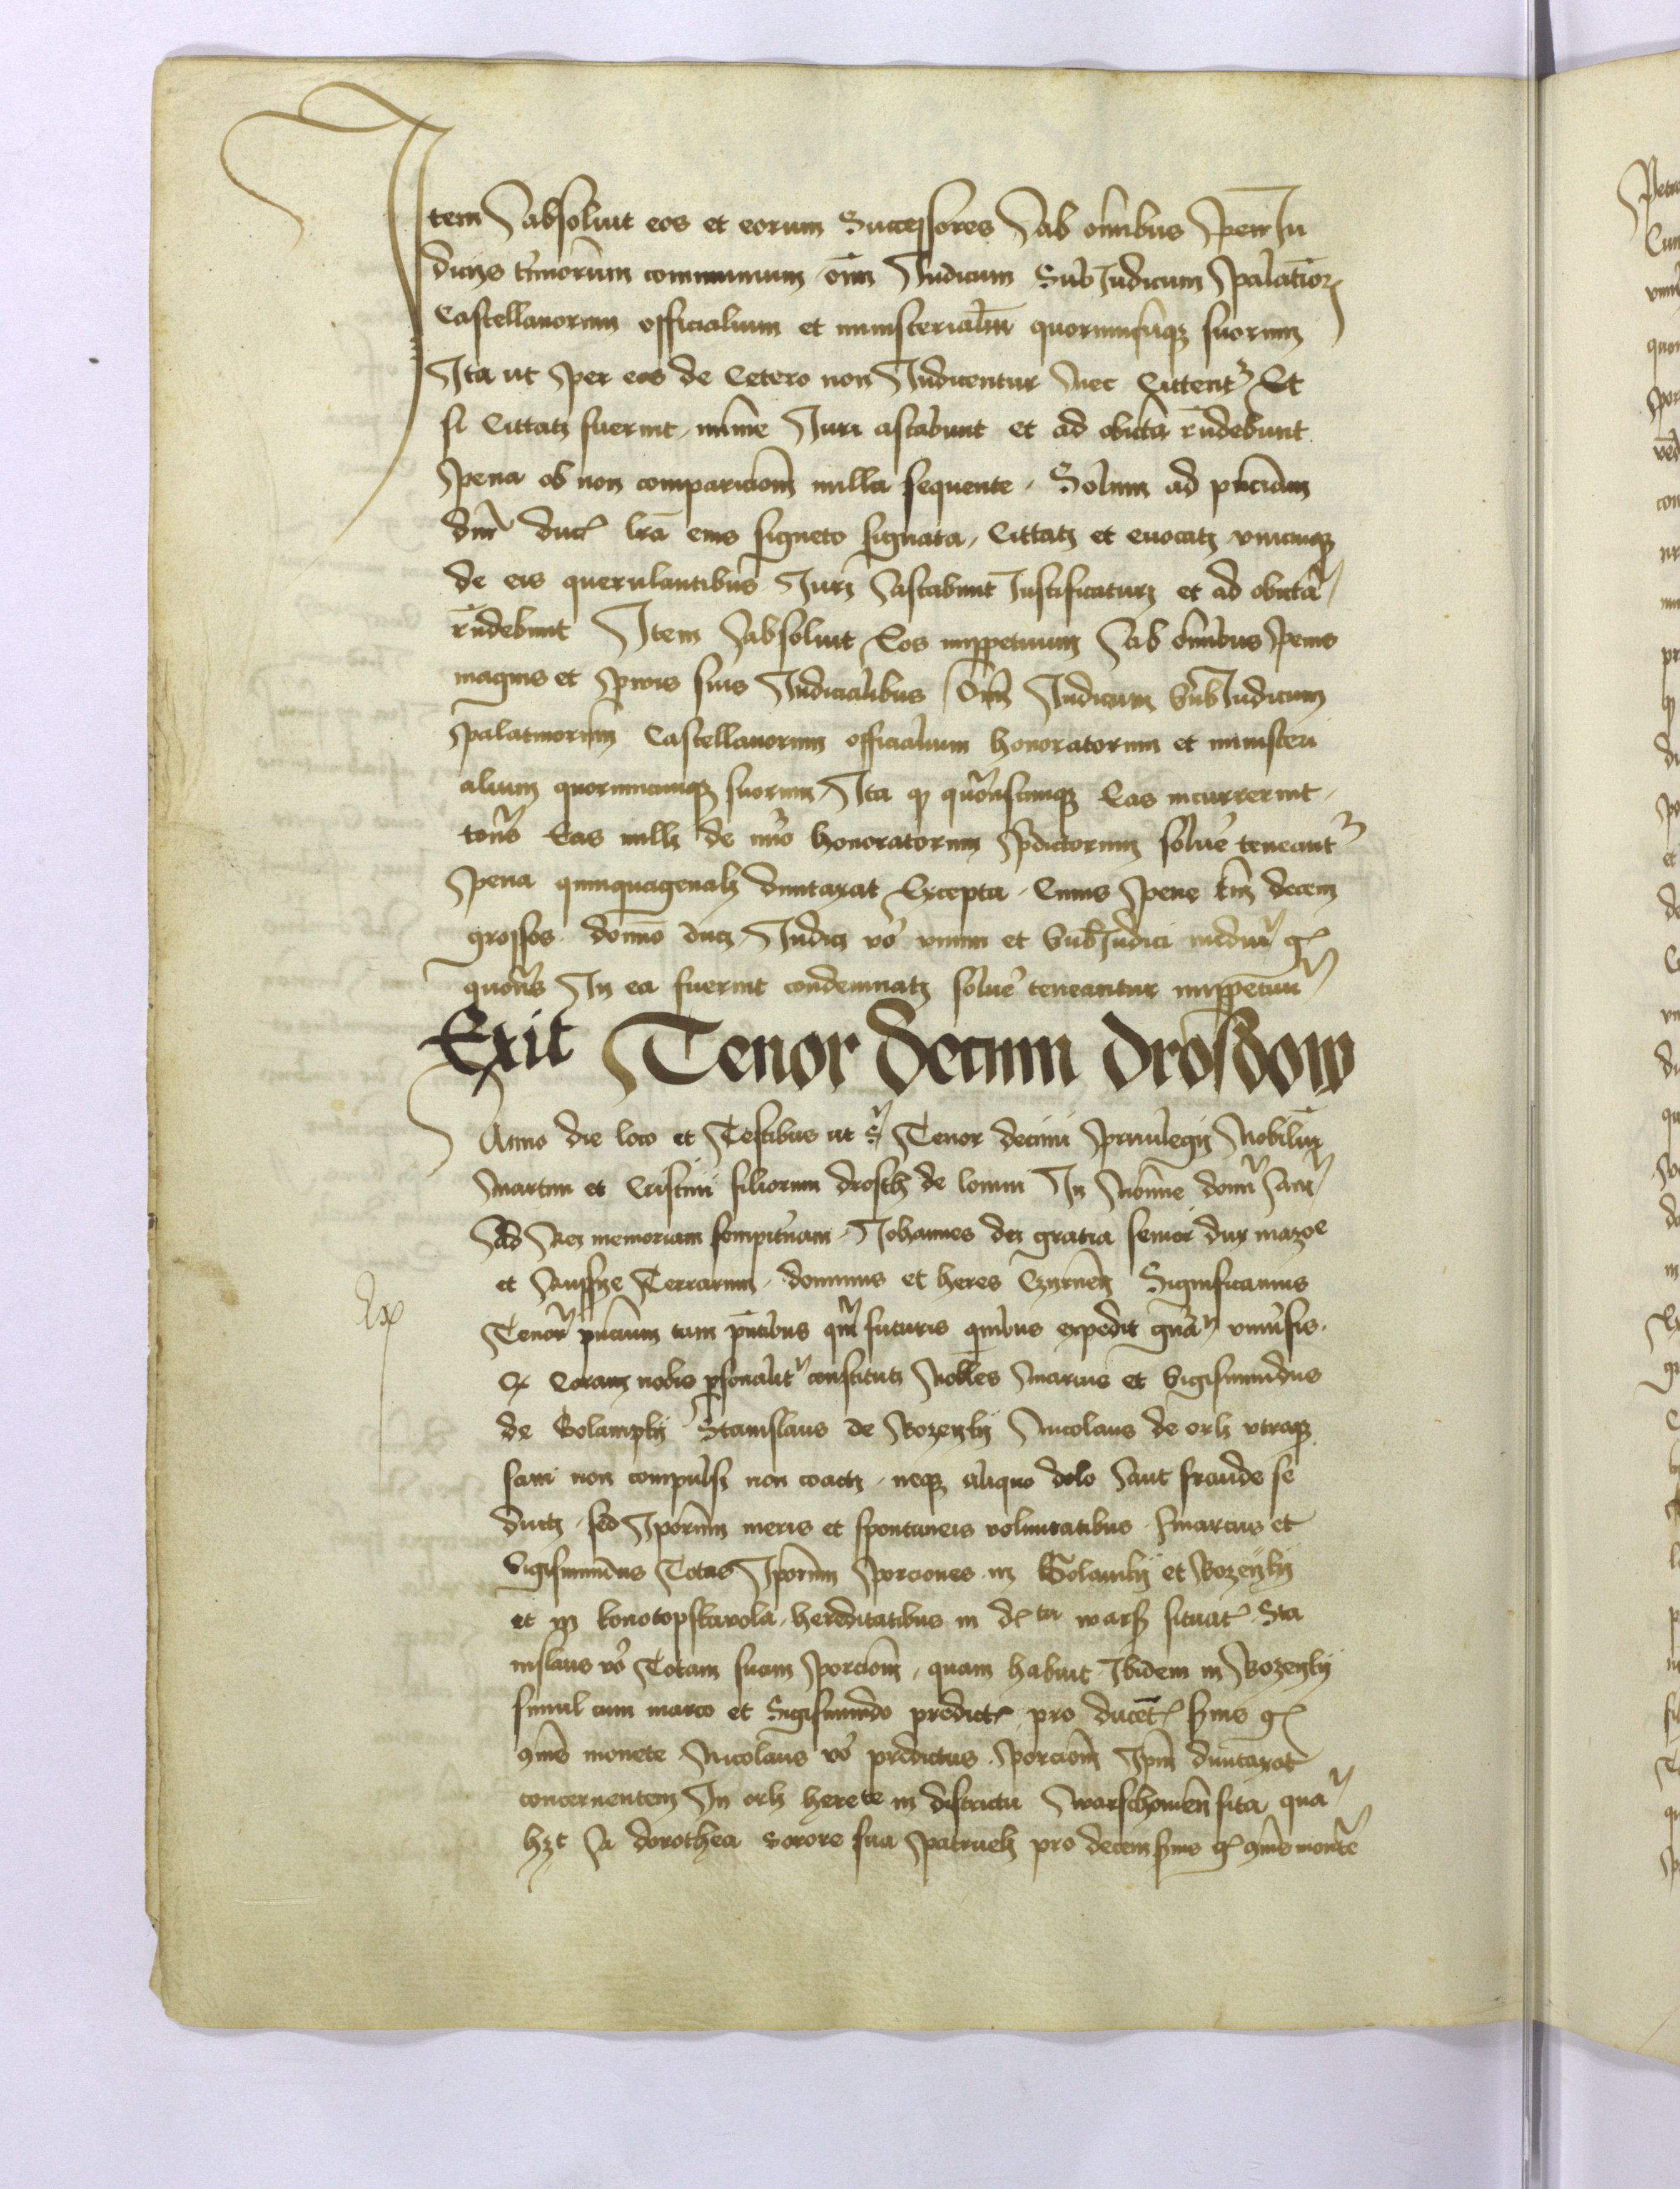 Item absoluit eos et eorum Successores ab omnibus pen Ju
dicijs trinorum communium oim Judicum SubJudicum palatior
Castellanorum officialium et ministerialiu quorumcuqz suorum
Ita ut per eos de Cetero non Judicentur nec Cittent Et
si Cittati fuerint mime Juri astabunt et ad obiecta rndebunt
pena ob non comparicioem nulla sequente Solum ad pnciam
dni duc lra eius signeto signata Cittati et euocati unicuiqz
de eis querulantibus Juri astabunt Justificaturi et ad obiecta
rndebunt Item absoluit Eos imppetuum ab omnibus penis
magnis et pruis suis Judicialibus Oim Judicum SubJudicum
palatinorum Castellanorum officialium honoratorum et ministeri
alium quorumcumqz suorum Ita qz quocienscumqz Eas incurrerint
tocies Eas nulli de nuo honoratorum pdictorum soluere teneant
pena quinquagenali duntaxat Excepta Cuius pene tm decem
grossos domino duci Judici vo unum et SubJudici mediu g
quociens In ea fuerint condemnati soluere teneantur imppetuu
Exit Tenor Decimi Drosdow
Anno die loco et Testibus ut s Tenor decimi priuilegij Nobiliu
Martini et Cristini filiorum drosch de lomni In Nomine domi Am
Ad Rei memoriam sempiternam Johannes dei gratia senior dux mazoe
et Russye Terrarum dominus et heres Czyrnen Significamus
Tenor pncium tam pntibus qm futuris quibus expedit gnar uniusis
Ex
qz Coram nobis psonalit constituti Nobiles Marcus et Sigismundus
de Golamky Stanislaus de Rozenky Nicolaus de orli utraqz
sani non compulsi non coacti neqz aliquo dolo aut fraude se
ducti sed Iporum meris et spontaneis voluntatibus Marcus et
Sigismundus Totas Iporum porciones in Golamky et Rozenky
et in konotopskawola hereditatibus in d ta wars situat Sta
nislaus vo Totam suam porcioem quam habuit Ibidem in Rozenky
simul cum marco et Sigismundo predict pro ducet sms g
9mis monete Nicolaus vo predictus porcioem Ipm duntaxat
concernentem In orli herete in districtu warschouien sita qua
hzt A dorothea sorore sua patrueli pro decem sms g 9mis monete